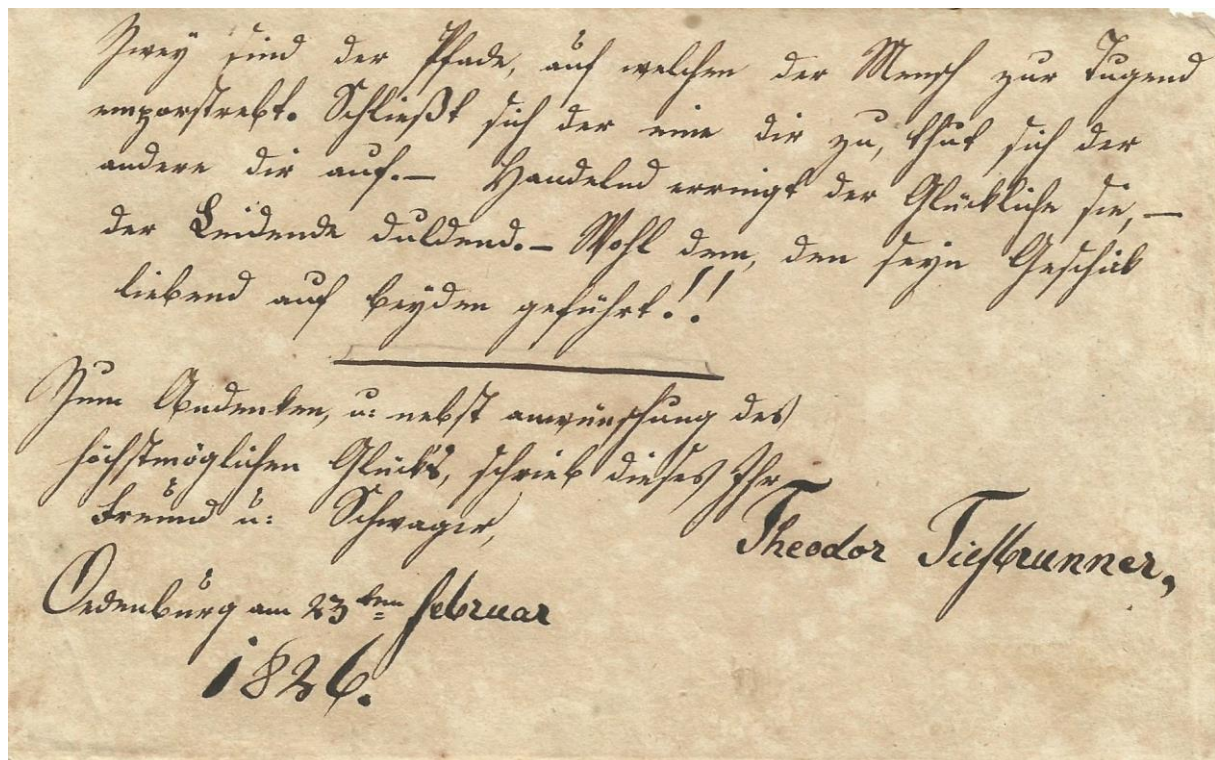 Zwey sind der Pfade, auf welchen der Mensch zur Tugend
emporstrebt. Schließt sich der eine dir zu, thut sich der
andere dir auf.— Handelnd erringt der Glückliche sie, —
der Leidende duldend.— Wohl dem, den seyn Geschick
liebend auf beyden geführt!!
Zum Andenken, u: nebst anwünschung des
höchstmöglichen Glücks, schrieb dieses Ihr
Freund u: Schwager,
Theodor Tiefbrunner,
Oedenburg am 23ten februar
1826.